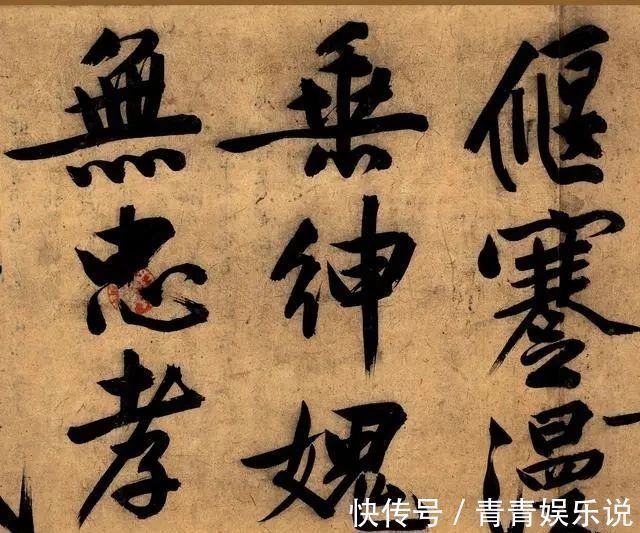 偃蹇温
垂紳媿
無忠孝
快传号 / 青青娱乐说